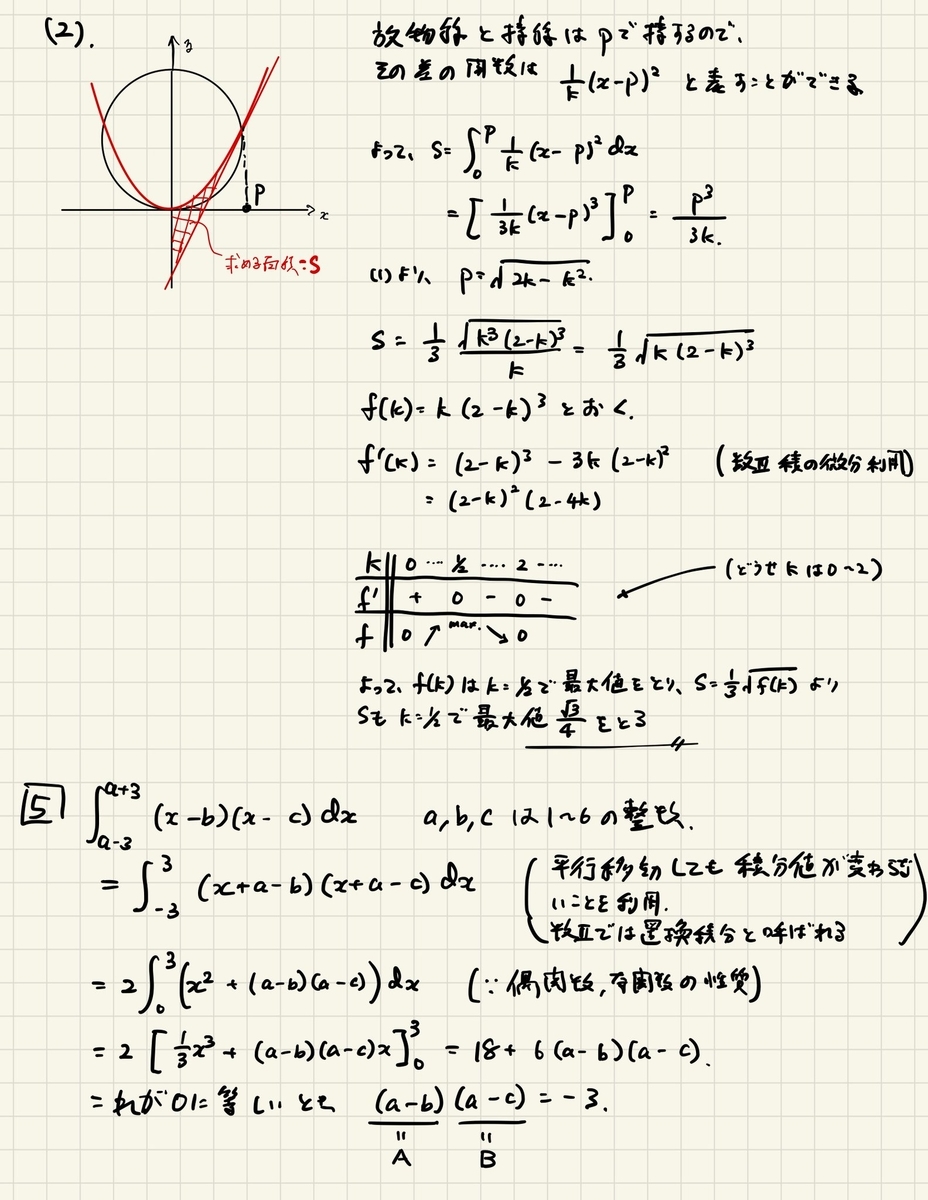 (2).
y
x
P
求める面積=S
放物線と接線はpで接するので、
その差の関数は 1/k (x-p)² と表すことができる
よって、 S=∫₀^p 1/k (x-p)² dx
= [ 1/3k (x-p)³ ]₀^p = p³/3k.
(1)より、 p=√(2k-k²).
S = 1/3 √(k³(2-k)³)/k = 1/3 √(k(2-k)³)
f(k)= k(2-k)³ とおく.
f'(k) = (2-k)³ - 3k(2-k)² (数Ⅲ 積の微分利用)
= (2-k)²(2-4k)
k 0 … ½ …. 2 ….
(どうせkは0~2)
f' + 0 - 0 -
f 0 ↗ max. ↘ 0
よって、f(k)はk=½で最大値をとり、S=1/3 √f(k) より
Sもk=½で最大値 √3/4 をとる
5 ∫_{a-3}^{a+3} (x-b)(x-c) dx a,b,c は1~6の整数.
= ∫_{-3}^{3} (x+a-b)(x+a-c) dx
(平行移動しても積分値が変わらな
いことを利用.
数Ⅲでは置換積分と呼ばれる)
= 2∫₀³ (x² + (a-b)(a-c)) dx (∵偶関数,奇関数の性質)
= 2 [ 1/3 x³ + (a-b)(a-c)x ]₀³ = 18 + 6(a-b)(a-c).
これが0に等しいとき (a-b)(a-c) = -3.
= =
A B